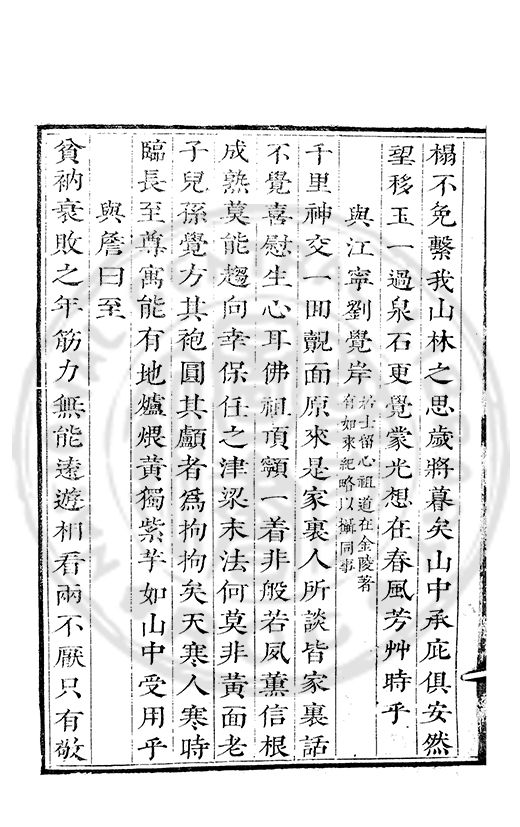 榻不免繫我山林之思歲將暮矣山中承庇俱安然
望移玉一過泉石更覺蒙光想在春風芳艸時乎
與江寧劉覺岸
若士留心祖道在金陵著
有如來紀略以攝同事
千里神交一囬覿面原來是家裏人所談皆家裏話
不覺喜慰生心耳佛祖頂𩕳一着非般若夙薰信根
成熟莫能趨向幸保任之津梁末法何莫非黃面老
子兒孫覺方其袍圓其顱者爲拘拘矣天寒人寒時
臨長至尊寓能有地爐煨黃獨紫芋如山中受用乎
與詹曰至
貧衲衰敗之年筋力無能遠遊相看兩不厭只有敬